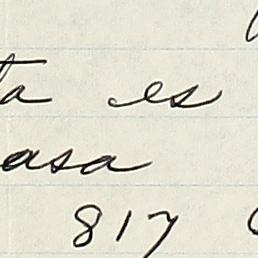 ta es
asa
817